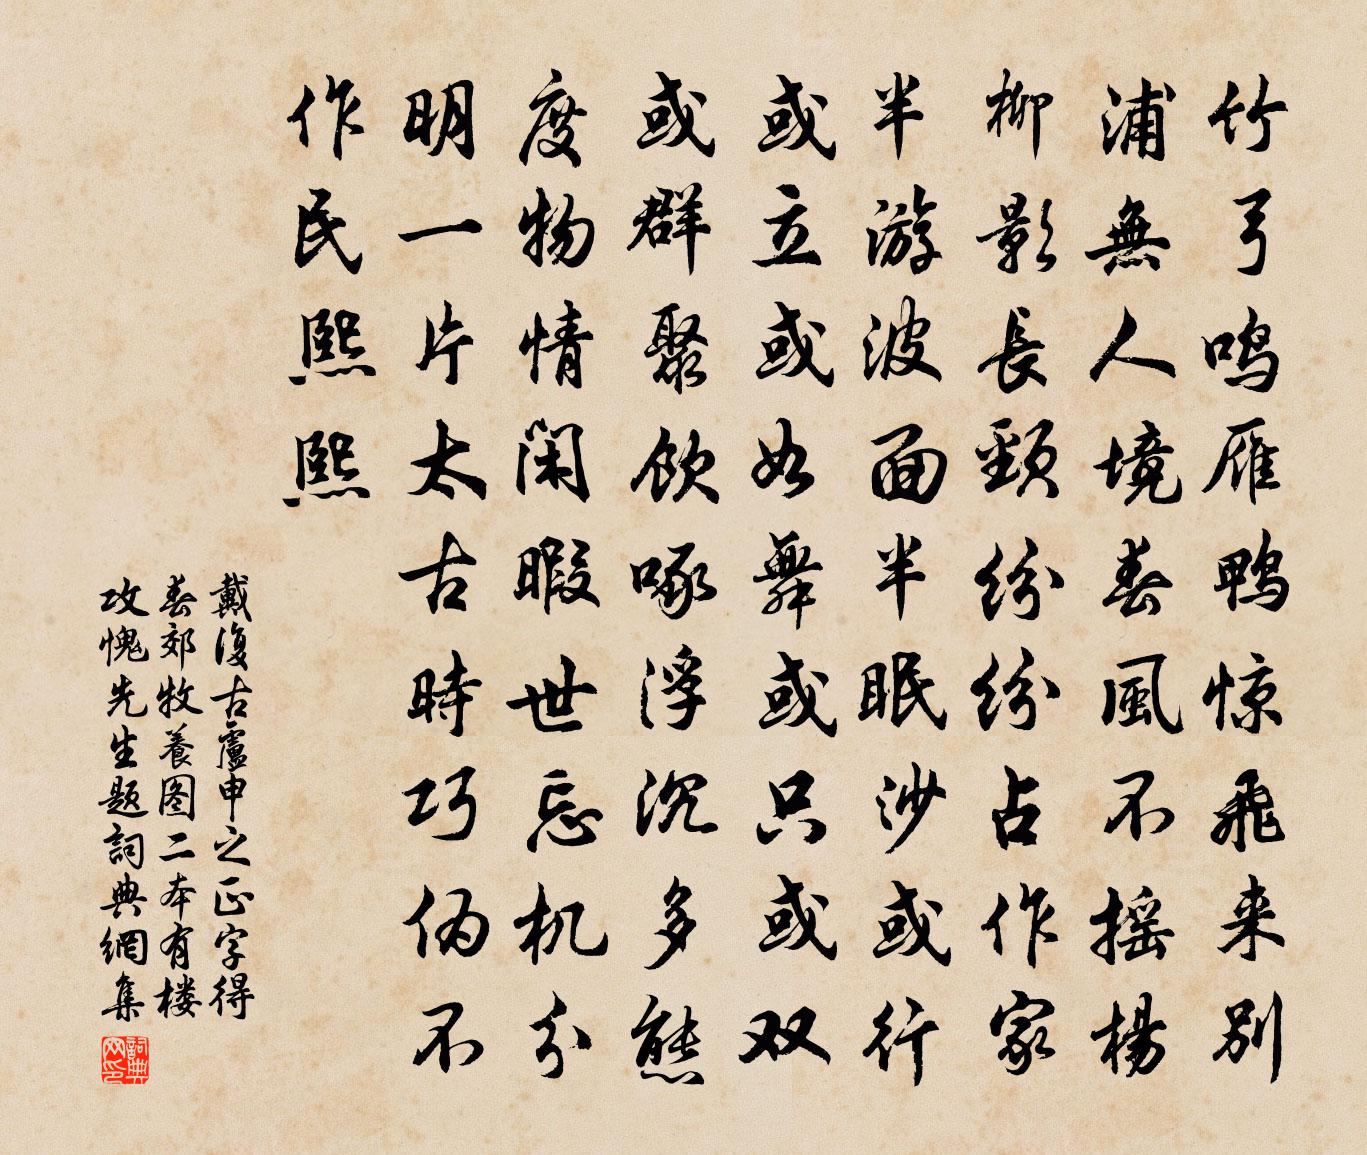 竹弓鸣雁鸭惊飛来别
浦無人境春風不摇楊
柳影長頸纷纷占作家
半游波面半眠沙或行
或立或如舞或只或双
或群聚飲啄浮沉多態
度物情闲暇世忘机分
明一片太古時巧伪不
作民熙熙
戴復古盧申之正字得
春郊牧養图二本有楼
攻愧先生题詞典網集
詞典网印